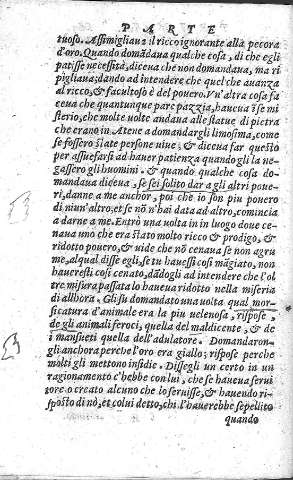 PARTE
tuoso. Assimigliaua il ricco ignorante alla pecora
d'oro. Quando domãdaua qualche cosa, di che egli
patisse necessità, diceua che non domandaua, ma ri
pigliaua; dando ad intendere che quel che auanza
al ricco, & facultoso è del pouero. Vn'altra cosa fa
ceua che quantunque pare pazzia, haueua ĩ se mi
sterio, che molte uolte andaua alle statue di pietra
che erano in Atene a domandargli limosina, come
se fossero state persone uiue; & diceua far questo
per assuefarsi ad hauer patienza quando gli la ne-
gassero gli huomini. & quando qualche cosa do-
mandaua diceua, se sei solito dar a gli altri poue-
ri, danne a me anchor, poi che io son piu pouero
di niun'altro, et se nõ n'hai data ad altro, comincia
a darne a me. Entrò una uolta in un luogo doue ce-
naua uno che era stato molto ricco & prodigo, &
ridotto pouero, & uide che nõ cenaua se non agru
me, al qual disse egli, se tu hauessi cosi mãgiato, non
haueresti cosi cenato, dãdogli ad intendere che l'ol
tre misura passata lo haueua ridotto nella miseria
di allhora. Gli fu domandato una uolta qual mor-
sicatura d'animale era la piu uelenosa, rispose,
de gli animali feroci, quella del maldicente, & de
i mansueti quella dell'adulatore. Domandaron-
gli anchora perche l'oro era giallo; rispose perche
molti gli mettono insidie. Dissegli un certo in un
ragionamento c'hebbe con lui, che se haueua serui
tore o creato alcuno che lo seruisse, & hauendo ri-
sposto di nò, et colui detto, chi t'hauerebbe sepelito
quando